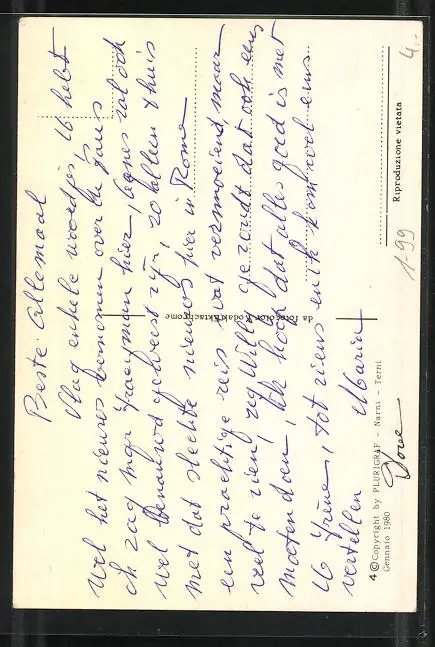 Beste allemaal
Nog enkele woordjes U hebt
wel het nieuws vernomen over de Paus
ik zag mgr hier, Agnes zal ook
wel benauwd geweest zijn, zo alleen thuis
met dat slechte nieuws hier in Rome
een prachtige reis wat vermoeiend, maar
veel te zien, zeg Willy ge zoudt dat ook eens
moeten doen, Ik hoop dat alles goed is met
U Irène, tot ziens en ik kom wel eens
vertellen Maria
da fotocolor Kodak Ektachrome
4 © Copyright by PLURIGRAF - Narni - Terni
Gennaio 1980
Riproduzione vietata
1-99
4.-